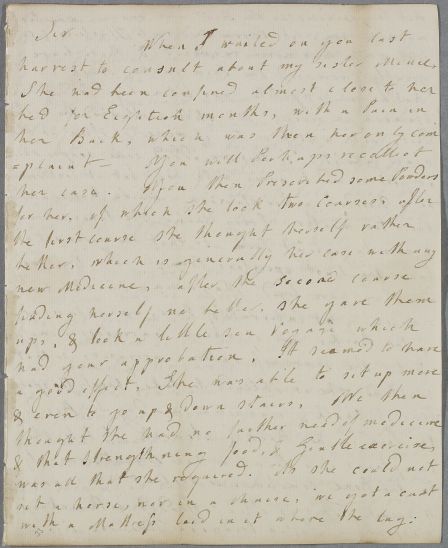 Sir
When I waited on you last
harvest to consult about my sister
She had been confined almost close to her
bed for Eighteen months, with a Pain in
her Back, which was then her only com
=plaint— You will Perhaps recollect
her case. You then Prescribed some Powders
for her, of which she took two Courses, after
the first course she thought herself rather
better, which is generally her case with any
new Medicine, after the second course
finding herself no better, she gave them
up, & took a little sea which
had your approbation. It seemed to have
a good effect. She was able to sit up more
& even to go up & down stairs. We then
thought she had no further need of medicine
& that strengthning food, & Gentle exercise,
was all that she required. As she could not
sit a horse, nor in a chaise, we got a cart
with a Mattress laid in it where she lay: